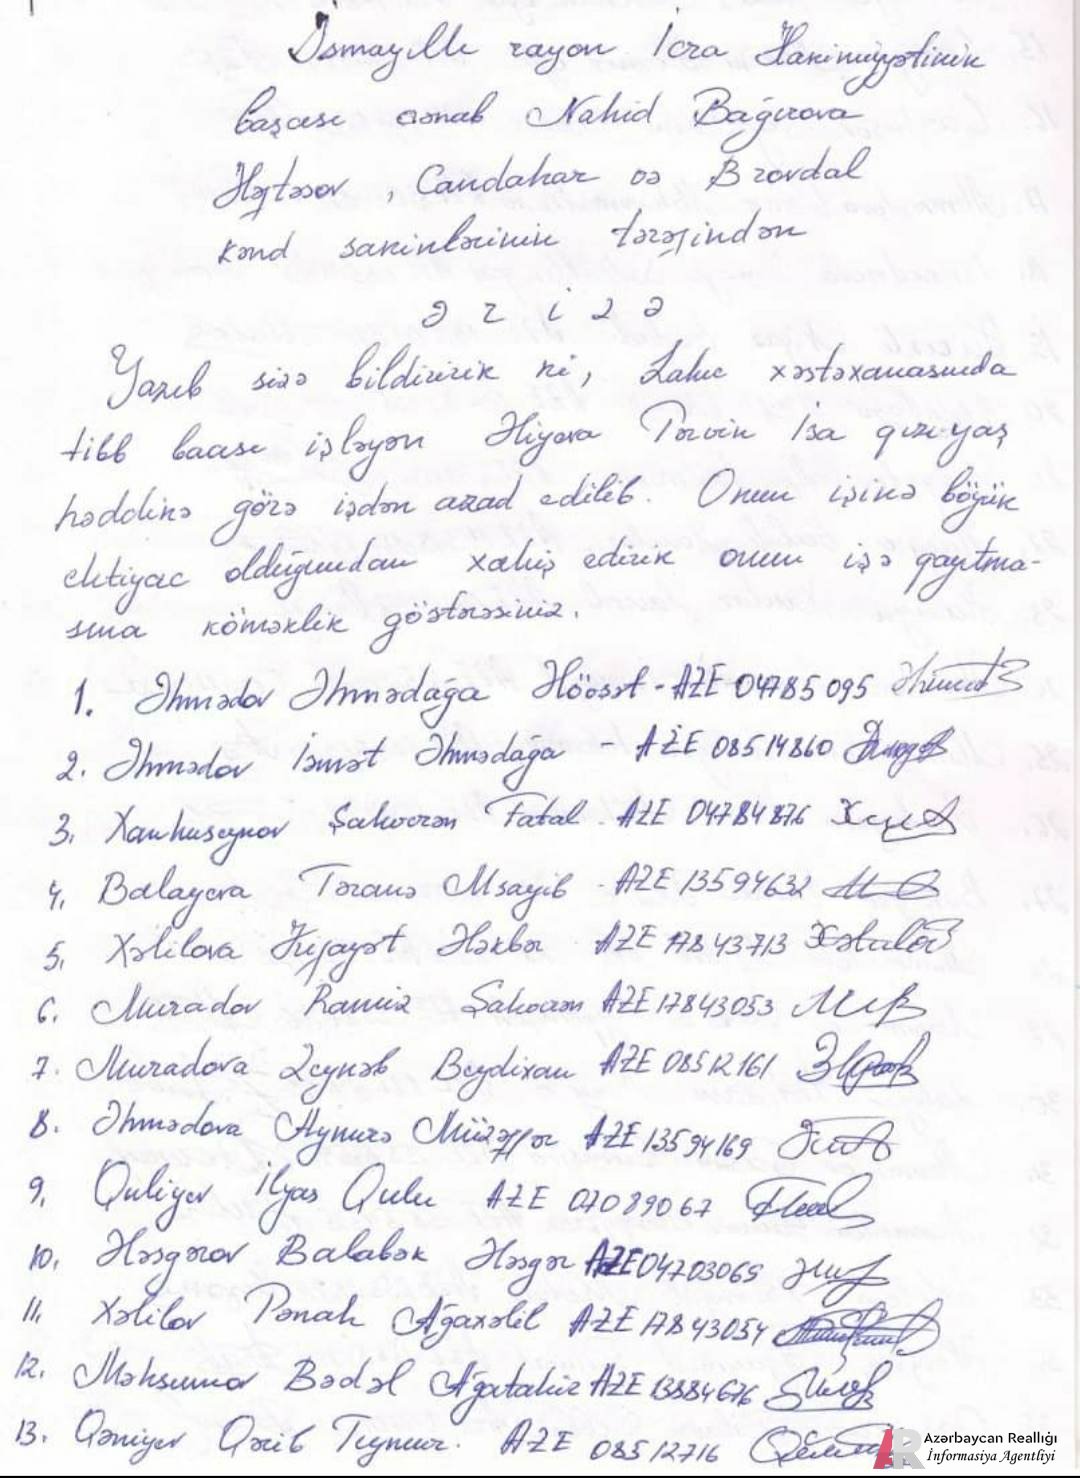 İsmayıllı rayon İcra Hakimiyyətinin
başcısı cənab Nahid Bağırova
Həftəsov, Candahar və Brovdal
kənd sakinlərinin tərəfindən
Ə r i z ə
Yazıb sizə bildiririk ki, Lahıc xəstəxanasında
tibb bacısı işləyən Əliyeva Pərvin İsa qızı yaş
həddinə görə işdən azad edilib. Onun işinə böyük
ehtiyac olduğundan xahiş edirik onun işə qayıtma-
sına köməklik göstərəsiniz.
1. Əhmədov Əhmədağa - AZE 04785095
2. Əhmədov İsmət Əhmədağa - AZE 08514860
3. Xanhuseynov Şahverən Fətal - AZE 04784876
4. Balayeva Təranə Msayib - AZE 13594632
5. Xəlilova Kifayət Ələkbər - AZE 17843713
6. Muradov Ramiz Şahverən AZE 17843053
7. Muradova Zeynəb Beydixan AZE 08512161
8. Əhmədova Aynurə Müzəffər AZE 13594169
9. Quliyev İlyas Qulu AZE 07089067
10. Ələsgərov Balabək Ələsgər AZE 04703065
11. Xəlilov Pənah Ağaxəlil AZE 17843054
12. Məhsumov Bədəl Ağatahir AZE 13884676
13. Qəniyev Qərib Teymur. AZE 08512716
AR Azərbaycan Reallığı
İnformasiya Agentliyi